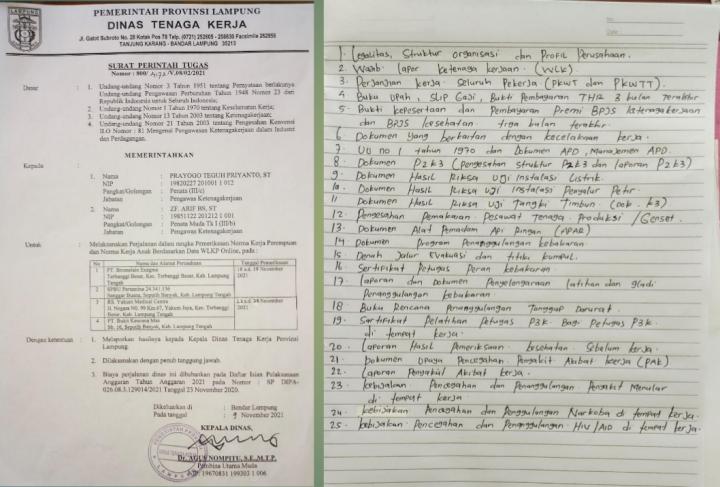 PEMERINTAH PROVINSI LAMPUNG
DINAS TENAGA KERJA
Jl. Gatot Subroto No. 28 Kotak Pos 78 Telp. (0721) 252605 - 258630 Facsimile 252656
TANJUNG KARANG - BANDAR LAMPUNG 35213
SURAT PERINTAH TUGAS
Nomor : 800/ /V.08/02/2021
Dasar :
1. Undang-undang Nomor 3 Tahun 1951 tentang Pernyataan berlakunya
Undang-undang Pengawasan Perburuhan Tahun 1948 Nomor 23 dari
Republik Indonesia untuk Seluruh Indonesia;
2. Undang-undang Nomor 1 Tahun 1970 tentang Keselamatan Kerja;
3. Undang-undang Nomor 13 Tahun 2003 tentang Ketenagakerjaan;
4. Undang-undang Nomor 21 Tahun 2003 tentang Pengesahan Konvensi
ILO Nomor : 81 Mengenai Pengawasan Ketenagakerjaan dalam Industri
dan Perdagangan.
MEMERINTAHKAN
Kepada :
1. Nama : PRAYOGO TEGUH PRIYANTO, ST
NIP : 19820227 201001 1 012
Pangkat/Golongan : Penata (III/c)
Jabatan : Pengawas Ketenagakerjaan
2. Nama : ZF. ARIF BS, ST
NIP : 19851122 201212 1 001
Pangkat/Golongan : Penata Muda Tk I (III/b)
Jabatan : Pengawas Ketenagakerjaan
Untuk : Melaksanakan Perjalanan dalam rangka Pemeriksaan Norma Kerja Perempuan
dan Norma Kerja Anak Berdasarkan Data WLKP Online, pada :
No Nama dan Alamat Perusahaan Tanggal Pemeriksaan
1 PT. Bromelain Enzyme
Terbanggi Besar, Kec. Terbanggi Besar, Kab. Lampung
Tengah
November
2021
2 SPBU Pertamina 24.341.136
Buana, Seputih Banyak, Kab. Lampung Tengah
3 RS. Yukum Medical Centre
Jl. Negara NO. 99 Km.67, Yukum Jaya, Kec. Terbanggi
Besar, Kab. Lampung Tengah
November
2021
4 PT. Bukit Kencana Mas
Seputih Banyak, Kab. Lampung Tengah
Dengan ketentuan :
1. Melaporkan hasilnya kepada Kepala Dinas Tenaga Kerja Provinsi
Lampung.
2. Dilaksanakan dengan penuh tanggung jawab.
3. Biaya perjalanan dinas ini dibebankan pada Daftar Isian Pelaksanaan
Anggaran Tahun Anggaran 2021 pada Nomor : SP DIPA-
026.08.3.129014/2021 Tanggal 23 November 2020.
Dikeluarkan di : Bandar Lampung
Pada tanggal : 9 November 2021
KEPALA DINAS,
Dr. AGUS NOMPITU, S.E.,M.T.P.
Pembina Utama Muda
NIP. 19670831 199303 1 006
No.
Date
1. Legalitas, Struktur organisasi dan Profil Perusahaan.
2. Wajib lapor ketenaga kerjaan (WLK).
3. Perjanjian kerja Seluruh Pekerja (PKWT dan PKWTT).
4. Buku Upah, Slip Gaji, Bukti Pembayaran THR 3 bulan terakhir
5. Bukti kepesertaan dan Pembayaran Premi BPJS ketenagakerjaan
dan BPJS kesehatan tiga bulan terakhir.
6. Dokumen yang berkaitan dengan kecelakaan kerja.
7. UU no 1 tahun 1970 dan Dokumen APD, Manajemen APD.
8. Dokumen P2K3 (Pengesahan struktur P2K3 dan laporan P2K3)
9. Dokumen Hasil Riksa Uji Instalasi Listrik.
10. Dokumen Hasil Riksa Uji Instalasi Penyalur Petir.
11. Dokumen Hasil Riksa Uji Tangki Timbun (Dok. K3)
12. Pengesahan Pemakaian Pesawat Tenaga Produksi / Genset.
13. Dokumen Alat Pemadam Api Ringan (APAR)
14. Dokumen Program Penanggulangan kebakaran
15. Denah Jalur Evakuasi dan titik kumpul.
16. Sertifikat Petugas Peran kebakaran.
17. Laporan dan Dokumen Penyelenggaraan latihan dan gladi
Penanggulangan kebakaran
18. Buku Rencana Penanggulangan Tanggap Darurat.
19. Sartifikat Pelatihan Petugas P3K Bagi Petugas P3K
di tempat kerja.
20. Laporan Hasil Pemeriksaan kesehatan Sebelum kerja.
21. Dokumen Upaya Pencegahan Penyakit Akibat kerja (PAK)
22. Laporan Penyakit Akibat kerja.
23. kebijakan Pencegahan dan Penanggulangan Penyakit Menular
di tempat kerja
24. kebijakan Pencegahan dan Penggulangan Narkoba di tempat kerja.
25. kebijakan Pencegahan dan Penanggulangan HIV/AID di tempat kerja.